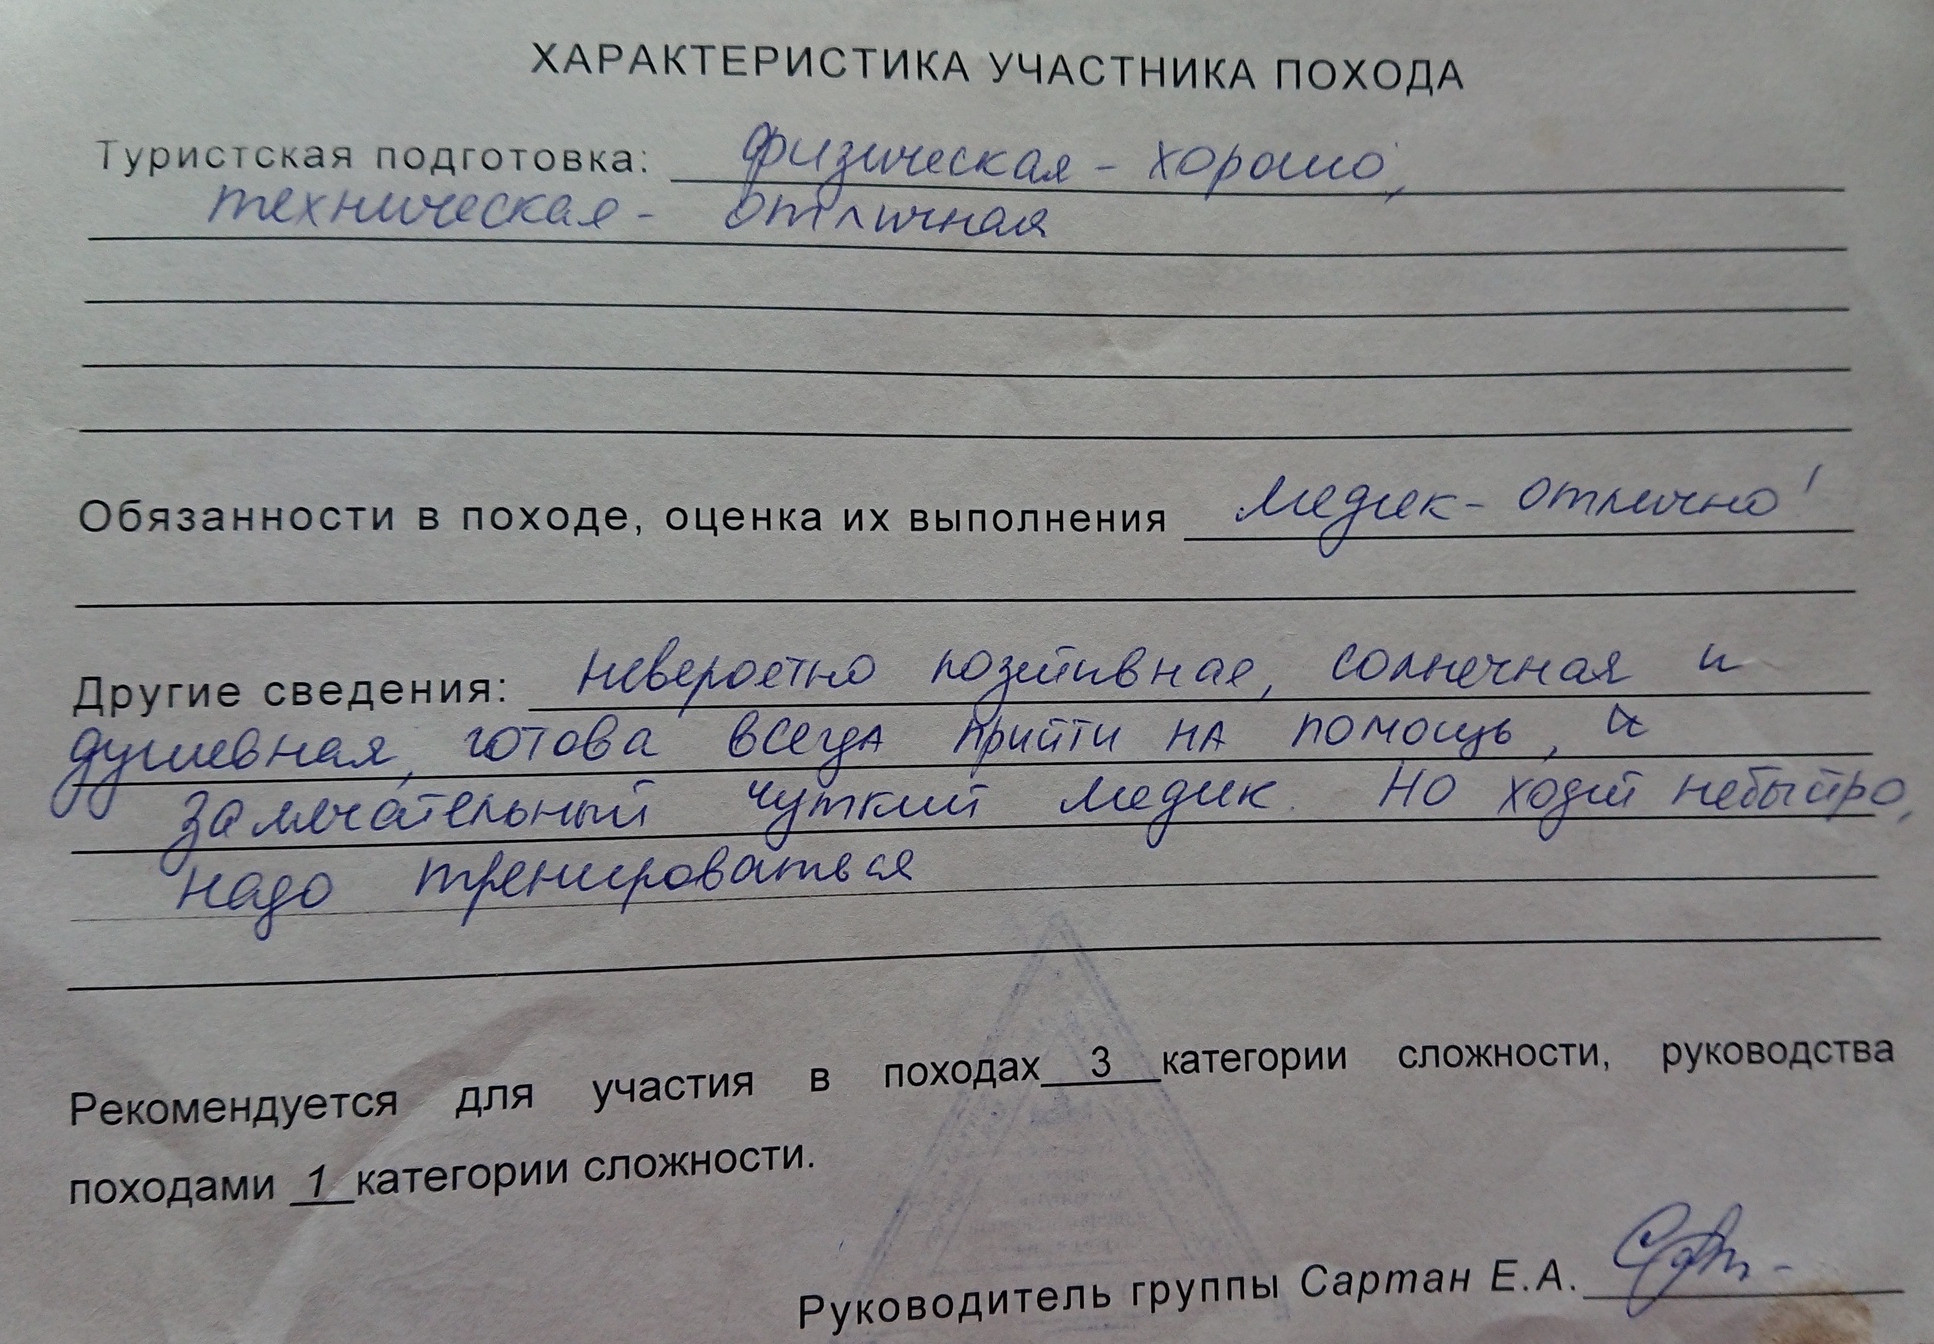 ХАРАКТЕРИСТИКА УЧАСТНИКА ПОХОДА
Туристская подготовка: физическая - хорошо,
техническая - отличная
Обязанности в походе, оценка их выполнения медик - отлично!
Другие сведения: невероятно позитивная, солнечная и
душевная, готова всегда прийти на помощь, и
замечательный чуткий медик. Но ходит небыстро,
надо тренироваться
Рекомендуется для участия в походах 3 категории сложности, руководства
походами 1 категории сложности.
Руководитель группы Сартан Е.А.